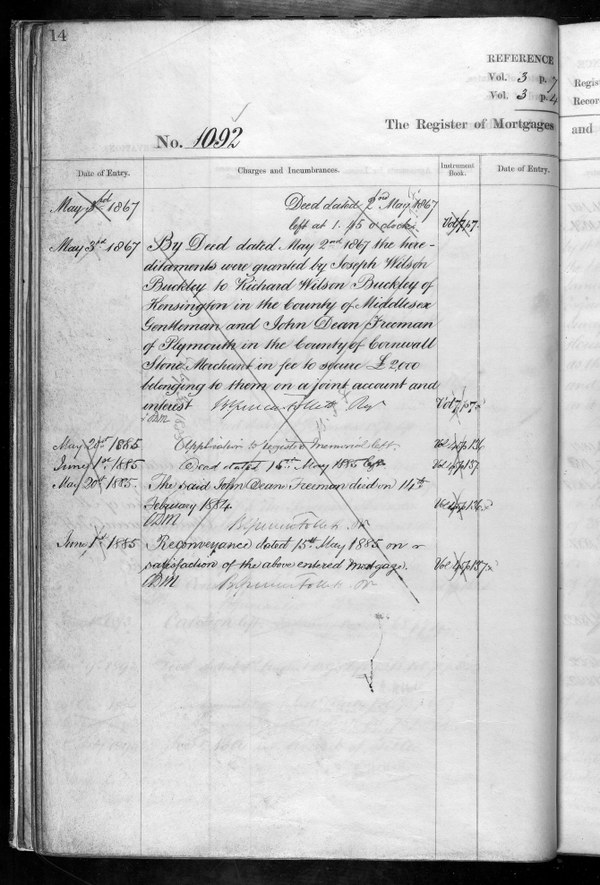 14
REFERENCE
Vol. 3 p. 7
Vol. 3 p.
The Register of Mortgages
and
Regist
Recor
No. 1092
Date of Entry.
Charges and Incumbrances.
Instrument Book.
Date of Entry.
May 3rd 1867
Deed dated 2nd May 1867
left at 1.45 o'clock
May 3rd 1867
By Deed dated May 2nd 1867 the here-
ditaments were granted by Joseph Wilson
Buckley to Richard Wilson Buckley of
Kensington in the County of Middlesex
Gentleman and John Dean Freeman
of Plymouth in the County of Cornwall
Stone Merchant in fee to secure £2,000
belonging to them on a joint account and
interest
May 20th 1885
Application to register memorial left.
Vol 45 p 136
June 1st 1885
Deed dated 15th May 1885 left
Vol 45 p 137
May 20th 1885.
The said John Dean Freeman died on 14th
February 1884.
Vol 45 p 136
June 1st 1885
Reconveyance dated 15th May 1885 on
satisfaction of the above entered mortgage.
Vol 45 p 137